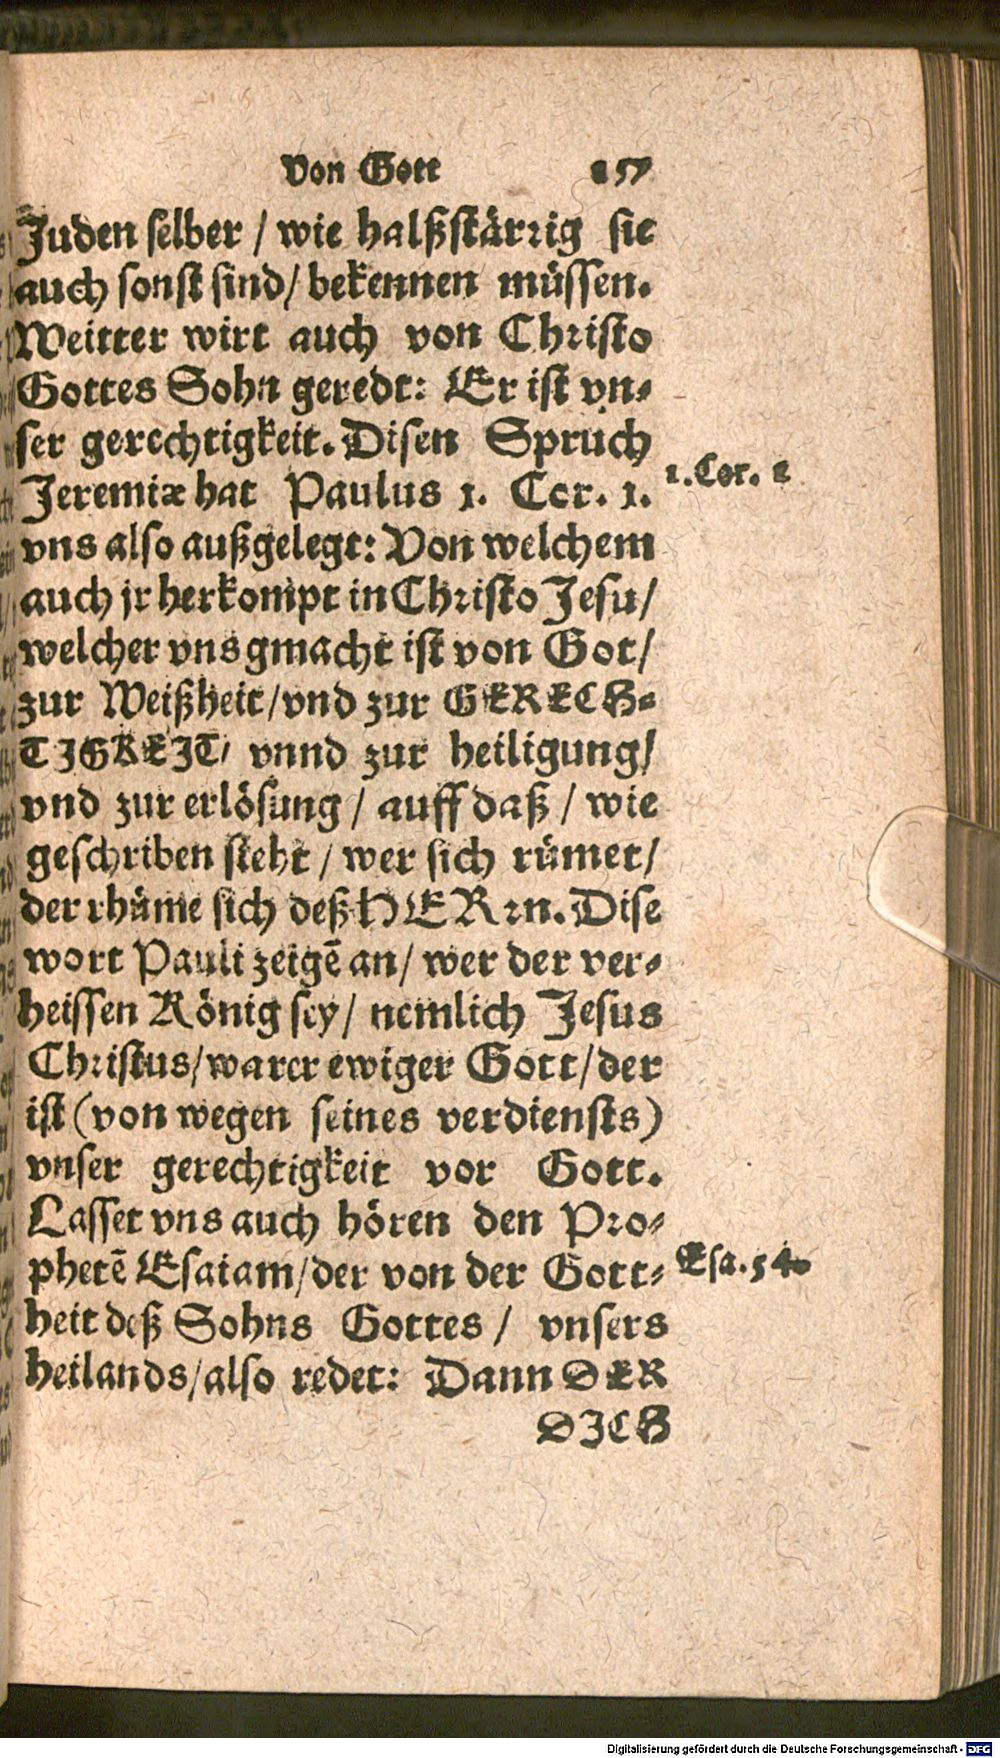 Von Gott 157
Juden selber / wie halßstärrig sie
auch sonst sind/ bekennen müssen.
Weitter wirt auch von Christo
Gottes Sohn geredt: Er ist vn-
ser gerechtigkeit. Disen Spruch
Jeremiæ hat Paulus 1. Cor. 1.
1. Cor. 1
vns also außgelegt: Von welchem
auch jr herkompt in Christo Jesu/
welcher vns gmacht ist von Got/
zur Weißheit/vnd zur GERECH-
TIGKEIT/ vnnd zur heiligung/
vnd zur erlösung / auff daß / wie
geschriben steht / wer sich rümet/
der rhüme sich deß HERrn. Dise
wort Pauli zeigē an/ wer der ver-
heissen König sey/ nemlich Jesus
Christus/warer ewiger Gott/der
ist (von wegen seines verdiensts)
vnser gerechtigkeit vor Gott.
Lasset vns auch hören den Pro-
phetē Esaiam/der von der Gott-
Esa. 54.
heit deß Sohns Gottes / vnsers
heilands/also redet: Dann DER
DICH
Digitalisierung gefördert durch die Deutsche Forschungsgemeinschaft - DFG